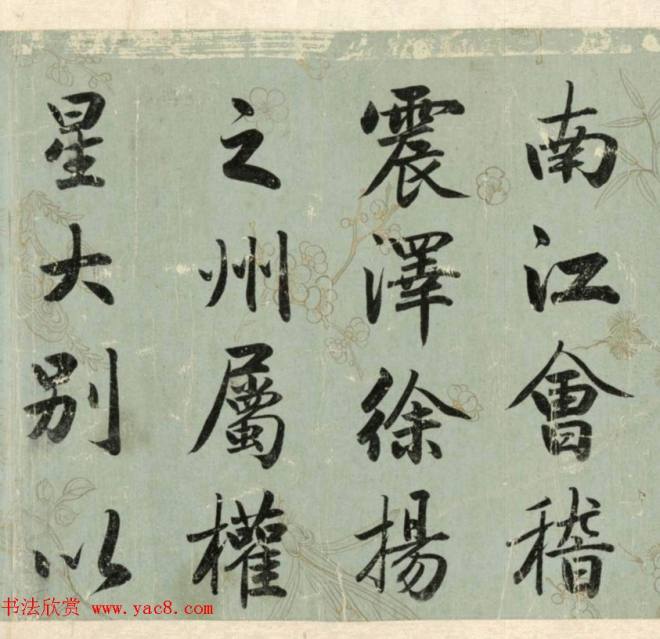 南江會稽
震澤徐揚
之州屬權
星大別以
书法欣赏 www.yac8.com